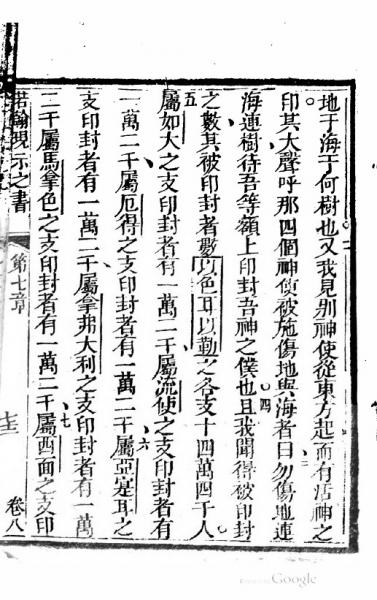 地于海于何樹也又我見別神使從東方起而有活神之
印其大聲呼那四個神使被施傷地與海者曰勿傷地連
海連樹待吾等額上印封吾神之僕也且我聞得被印封
之數其被印封者數以色耳以勒之各支十四萬四千人
屬如大之支印封者有一萬二千屬流使之支印封者有
一萬二千屬厄得之支印封者有一萬二千屬亞寔耳之
支印封者有一萬二千屬拿弗大利之支印封者有一萬
二千屬馬拿色之支印封者有一萬二千屬西面之支印
若翰現示之書 第七章 卷八
二
三
四
五
六
七
Google